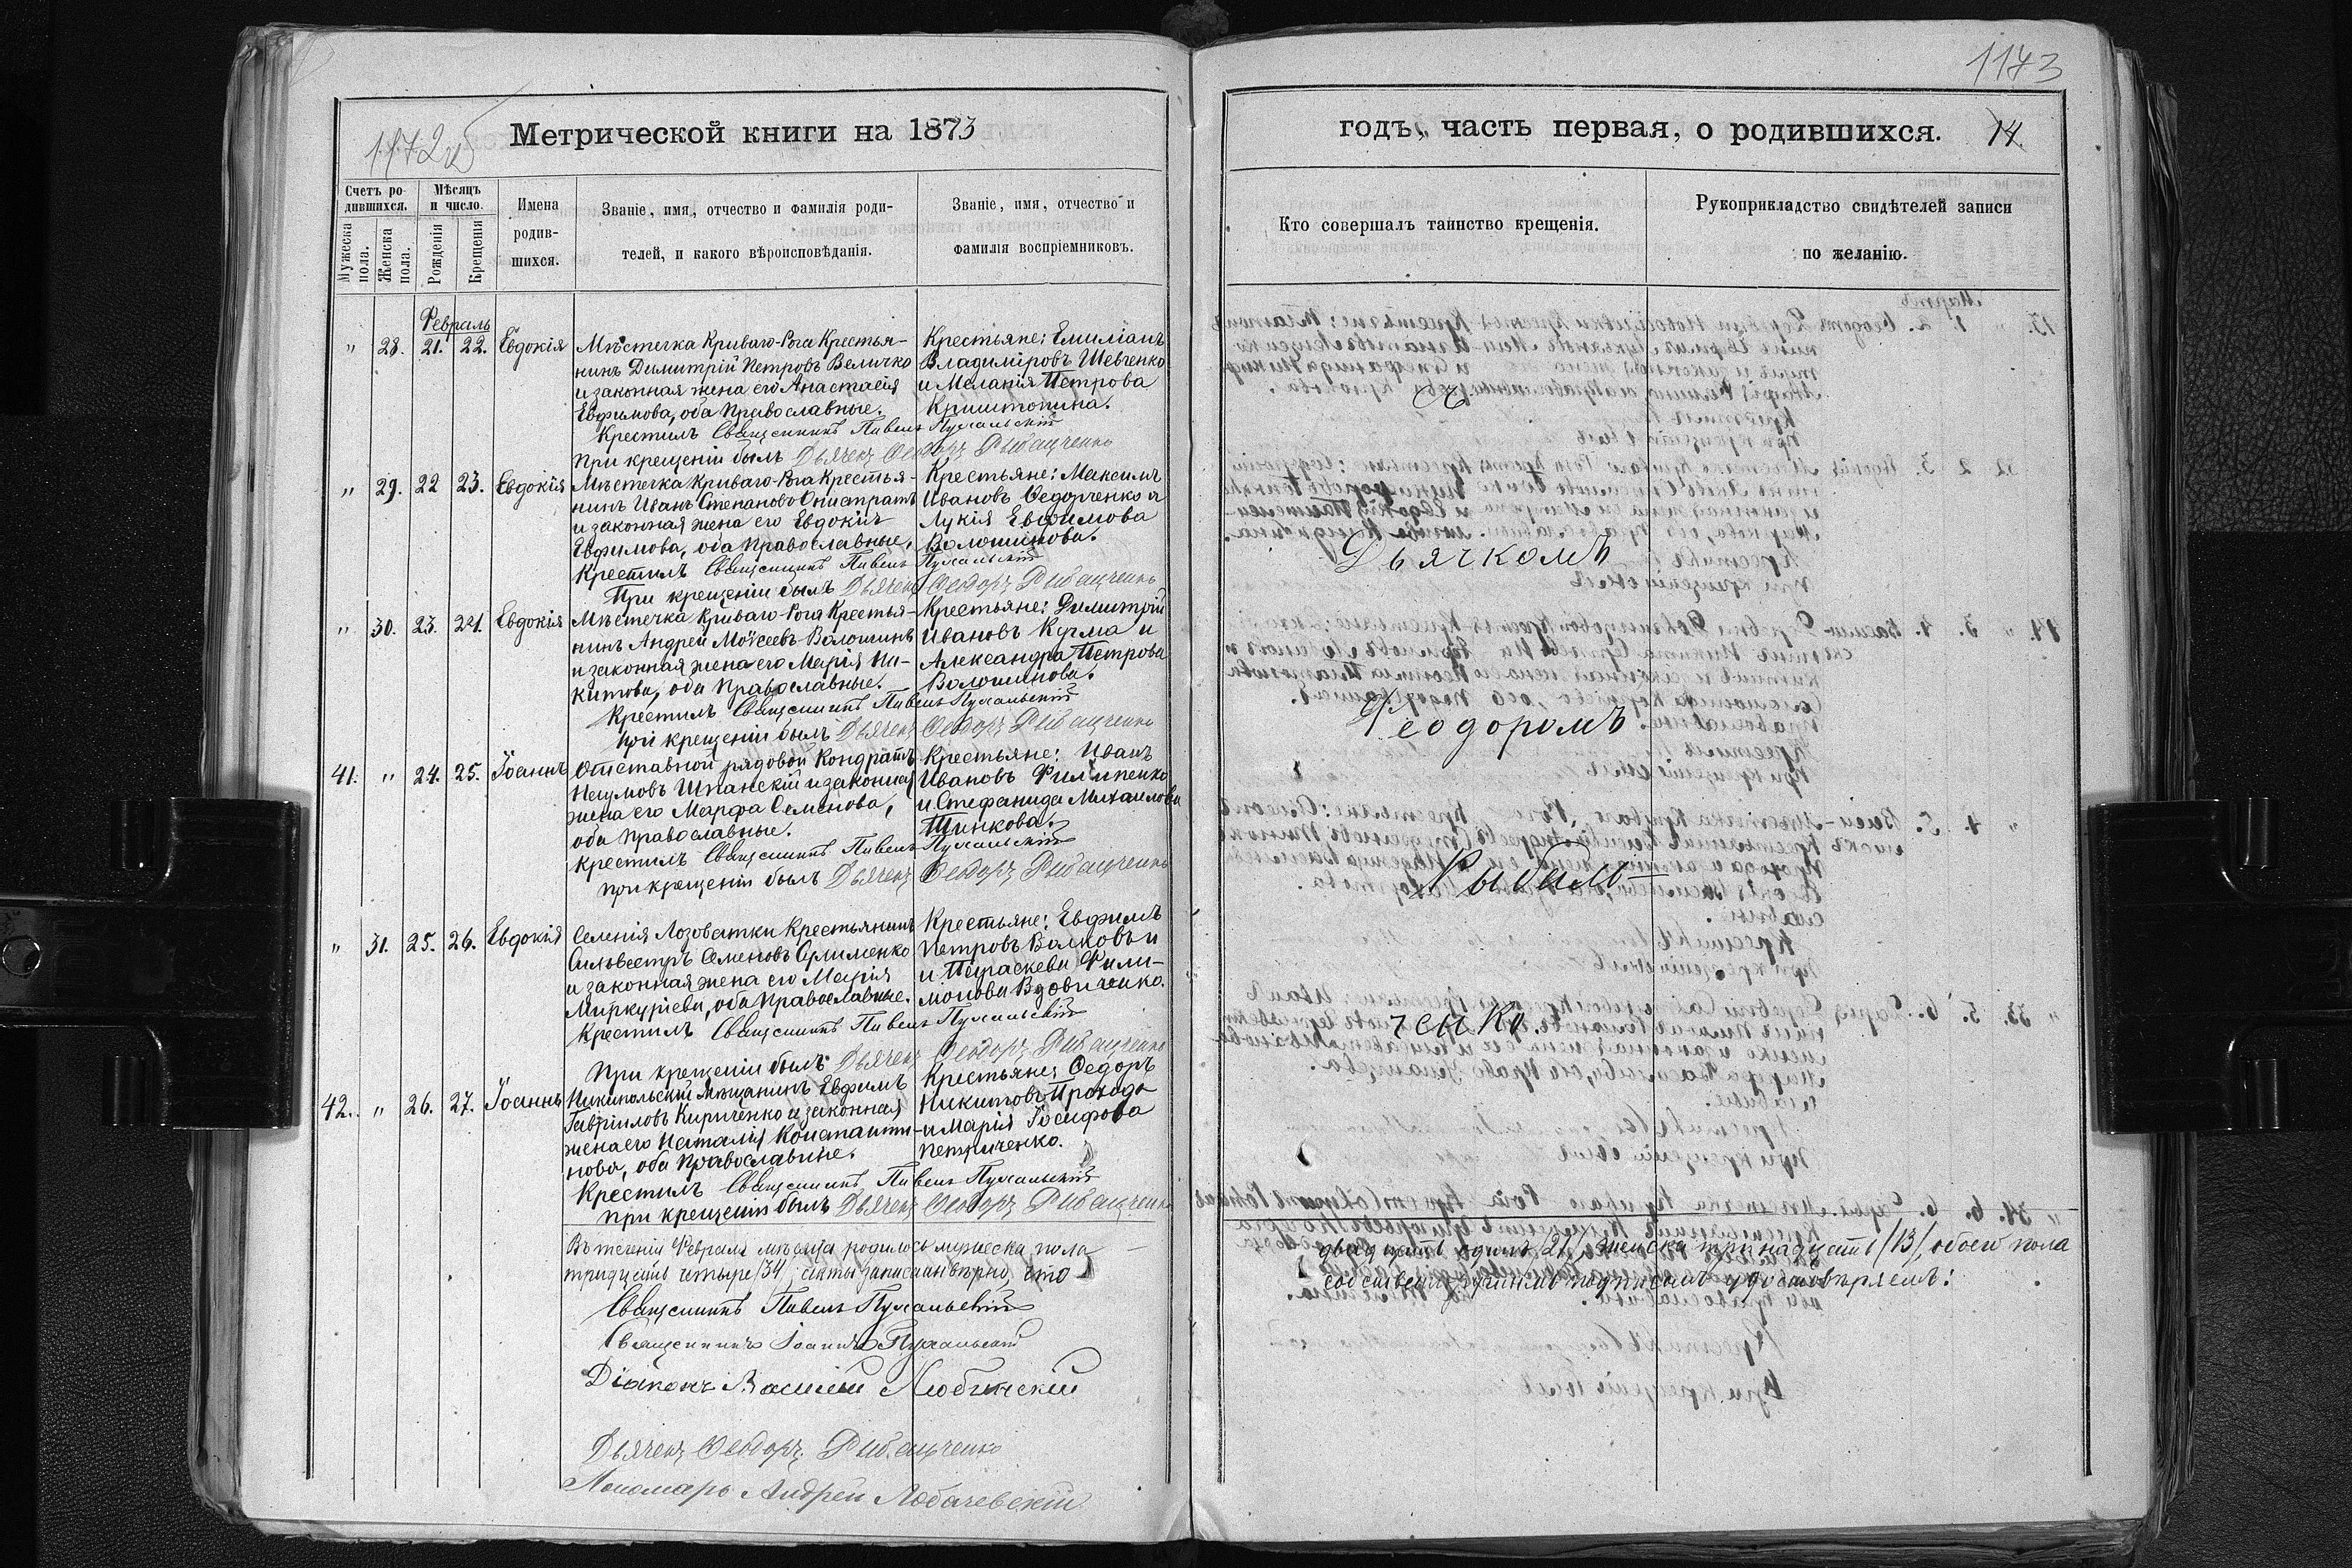 1173
1172 об
Метрической книги на 1873
годъ, часть первая, о родившихся. 14.
Счетъ родившихся.
Мѣсяцъ и число.
Имена родившихся.
Званіе, имя, отчество и фамилія родителей, и какого вѣроисповѣданія.
Званіе, имя, отчество и фамилія воспріемниковъ.
Мужеска пола.
Женска пола.
Рожденія
Крещенія
Кто совершалъ таинство крещенія.
Рукоприкладство свидѣтелей записи по желанію.
Февраль
" 28. 21. 22. Евдокія
Мѣстечка Криваго-Рога Крестья-
нинъ Димитрій Петровъ Величко
и законная жена его Анастасія
Евфимова, оба Православные.
Крестьяне: Емиліанъ
Владиміровъ Шевченко
и Меланія Петрова
Криштопина.
Крестилъ Священникъ Павелъ Пухальскій
При крещеніи былъ Дьячекъ Ѳеодоръ Рыбальченко
" 29. 22 23. Евдокія
Мѣстечка Криваго-Рога Крестья-
нинъ Иванъ Степановъ Онистратъ
и законная жена его Евдокія
Евфимова, оба Православные,
Крестьяне: Максимъ
Ивановъ Ѳедорченко и
Лукія Евфимова
Волошинова.
Крестилъ Священникъ Павелъ Пухальскій
При крещеніи былъ Дьячекъ Ѳеодоръ Рыбальченко
" 30. 23. 24. Евдокія
Мѣстечка Криваго-Рога Крестья-
нинъ Андрей Моѵсеевъ Волошинъ
и законная жена его Марія Ни-
китова, оба Православные.
Крестьяне: Димитрій
Ивановъ Курма и
Александра Петрова
Волошинова.
Крестилъ Священникъ Павелъ Пухальскій
При крещеніи былъ Дьячекъ Ѳеодоръ Рыбальченко
41. " 24. 25. Іоаннъ
Отставной рядовой Кондратъ
Наумовъ Шпанскій и законная
жена его Марфа Семенова,
оба Православные.
Крестьяне: Иванъ
Ивановъ Филипенко
и Стефанида Михаилова
Шинкова.
Крестилъ Священникъ Павелъ Пухальскій
при крещеніи былъ Дьячекъ Ѳеодоръ Рыбальченко
" 31. 25. 26. Евдокія
Селенія Лозоватки Крестьянинъ
Сильвестръ Семеновъ
и законная жена его Марія
Миркуріева, оба Православные.
Крестьяне: Евфимъ
Петровъ Волковъ и
и Параскева Фили-
монова Вдовиченко.
Крестилъ Священникъ Павелъ Пухальскій
При крещеніи былъ Дьячекъ Ѳеодоръ Рыбальченко
42. " 26. 27. Іоаннъ
Никопольскій Мѣщанинъ Евфимъ
Гавріиловъ Кириченко и законная
жена его Наталія Константи-
нова, оба Православные.
Крестьяне: Ѳедоръ
Никитовъ Прохода
и Марія Іосифова
Петриченко.
Крестилъ Священникъ Павелъ Пухальскій
при крещеніи былъ Дьячекъ Ѳеодоръ Рыбальченко
Въ теченіи Февраля мѣсяца родилось мужеска пола
двадцать одинъ /21/, женска тринадцать /13/, обоего пола
тридцать четыре /34/, акты записаны вѣрно, что
собственноручнымъ подписомъ удостовѣряемъ:
Священникъ Павелъ Пухальскій
Священникъ Іоаннъ Пухальскій
Діаконъ Василій Любинскій
Дьячекъ Ѳеодоръ Рыбальченко
Пономарь Андрей Лобачевскій
Дьячкомъ
Ѳеодоромъ
Рыбаль-
ченко.